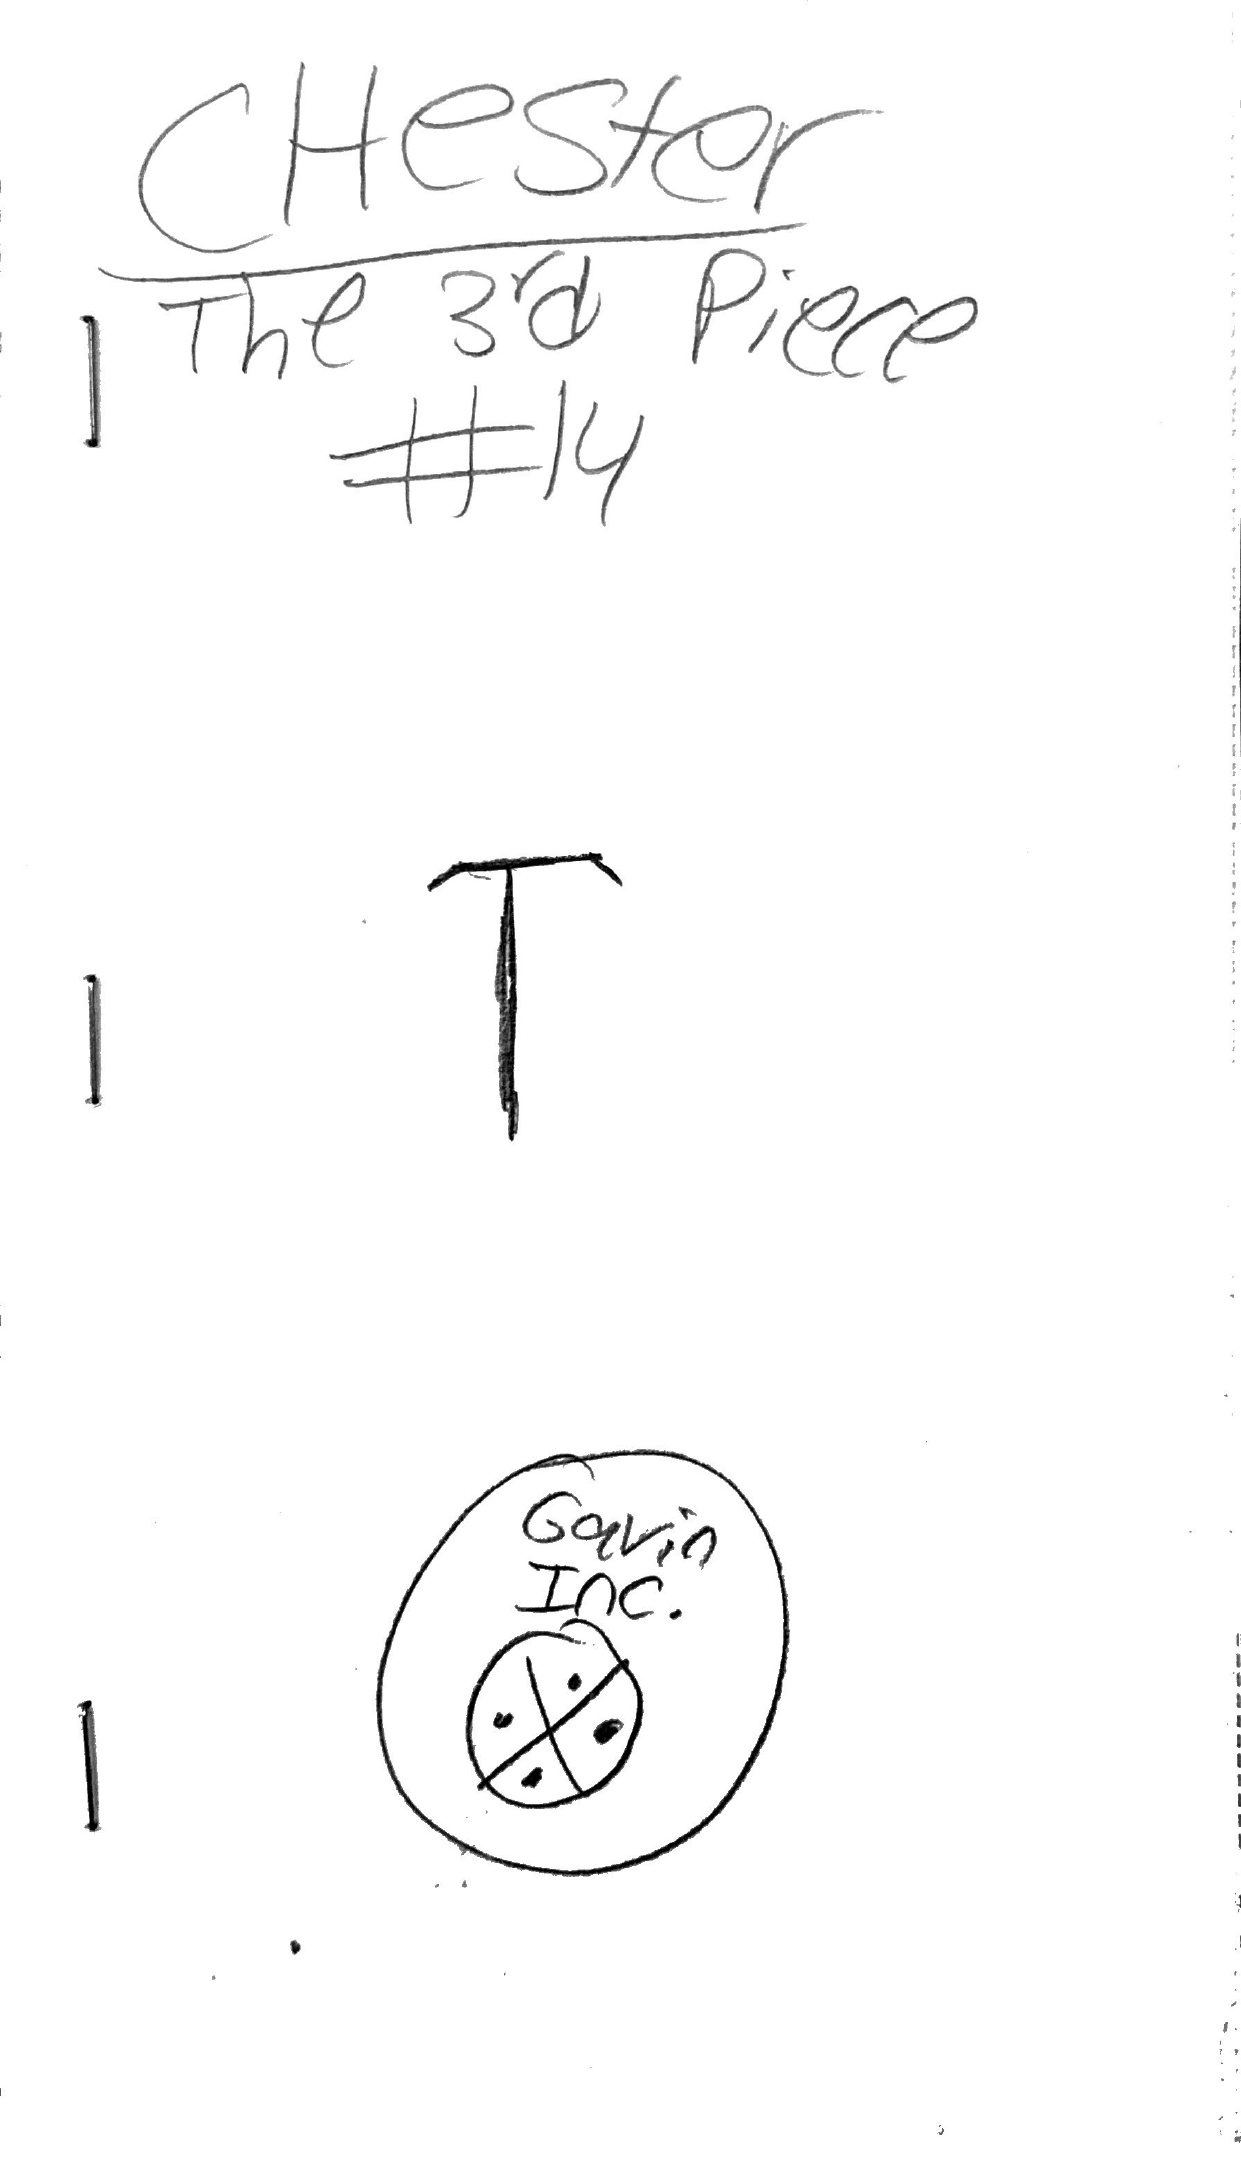 CHester
The 3rd Piece
#14
T
Gavin
Inc.